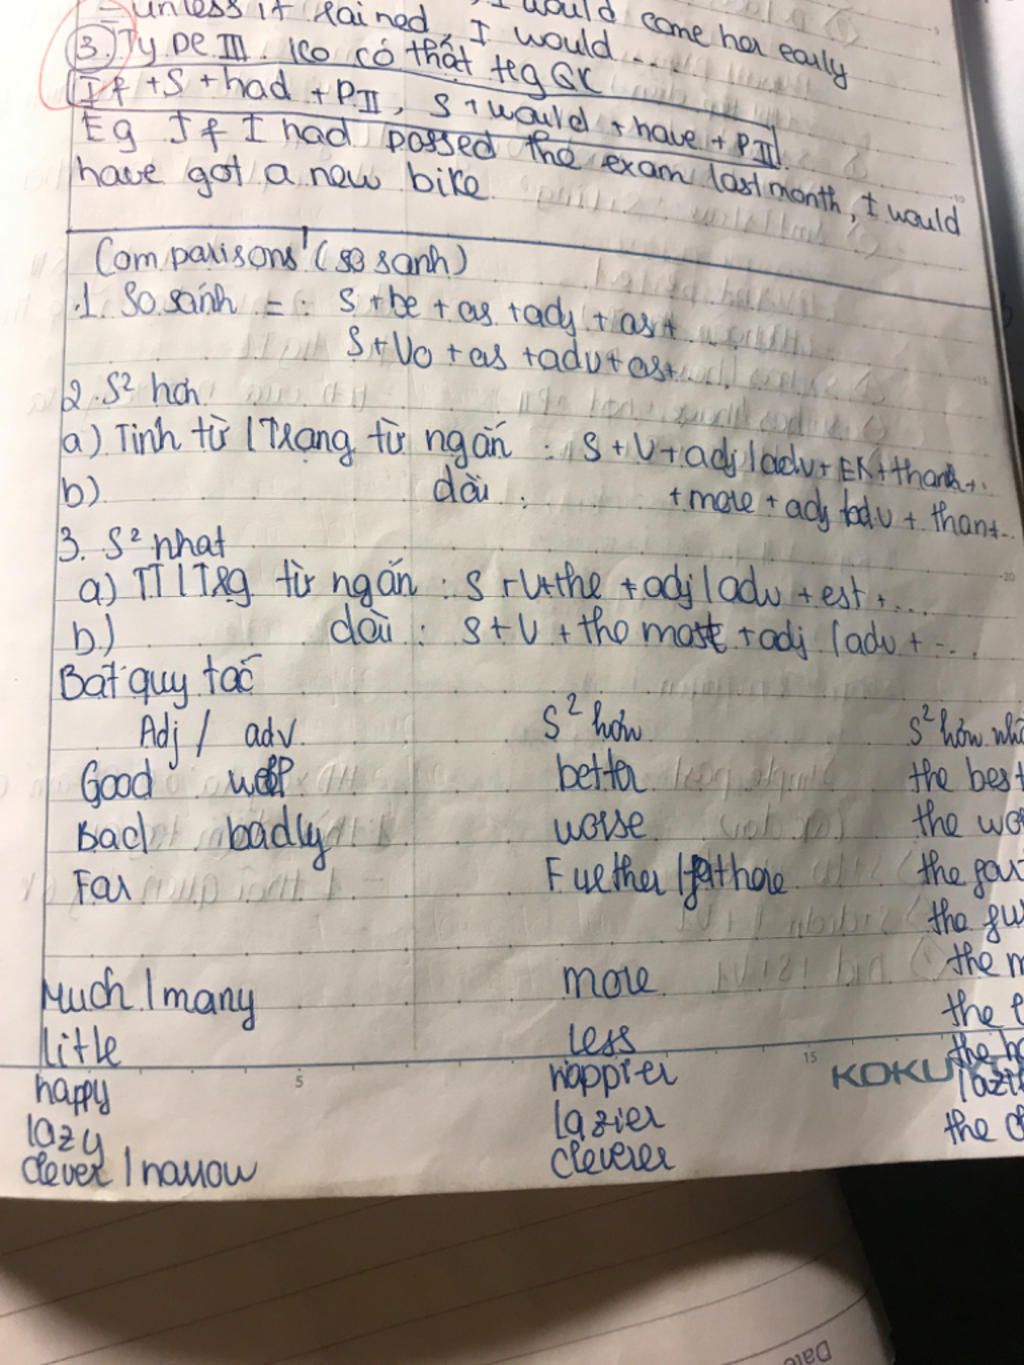 unless it rained, I would ...
I would come her early
3. Type III. Ko có thất trg QK
If + S + had + PII, S + would + have + PII
Eg If I had passed the exam last month, I would
have got a new bike
Comparisons (so sanh)
1. So sánh = : S + be + as + adj + as +
S + Vo + as + adv + as + ...
2. S² hơn
a) Tính từ / Trạng từ ngắn : S + V + adj / adv + ER + than + ..
b) dài : + more + adj / adv + than + ...
3. S² nhat
a) TT / Trg từ ngắn : S + V + the + adj / adv + est + ....
b) dài : S + V + the most + adj / adv + ...
Bất quy tắc
Adj / adv S² hơn S² hơn
Good well better the best
Bad badly worse the
Far Further / farthere the
the
Much / many more the
little less the
happy happier the
lazy lazier
clever / narrow cleverer the
5 15 KOKU
Date